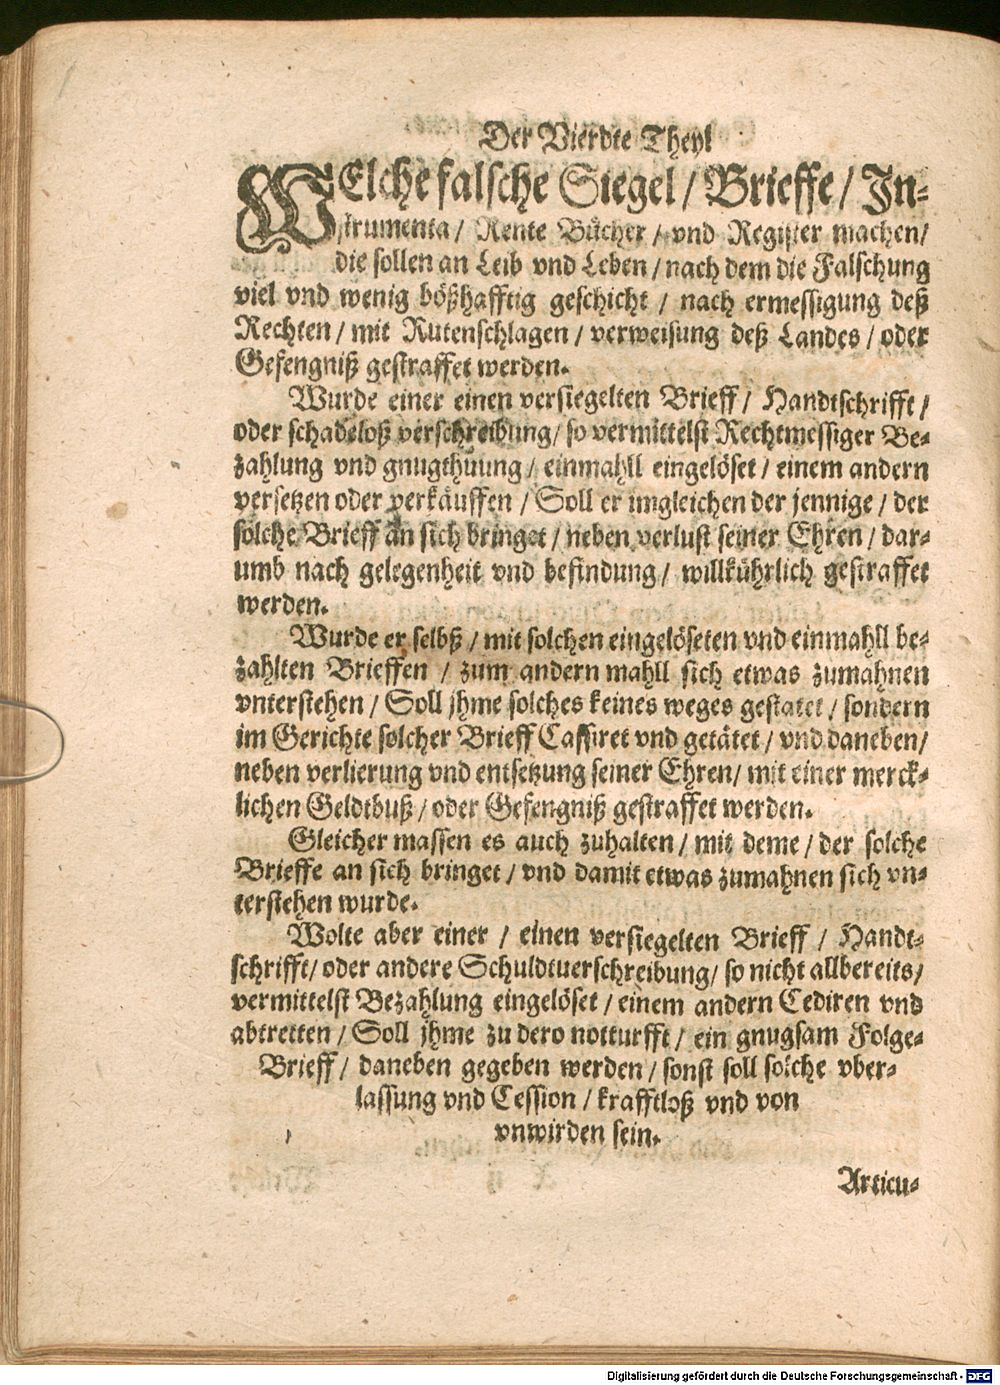 Der Vierdte Theyl
WElche falsche Siegel / Brieffe / In-
strumenta / Rente Bücher / vnd Register machen /
die sollen an Leib vnd Leben / nach dem die Falschung
viel vnd wenig bößhafftig geschicht / nach ermessigung deß
Rechten / mit Rutenschlagen / verweisung deß Landes / oder
Gefengniß gestraffet werden.
Wurde einer einen versiegelten Brieff / Handtschrifft /
oder schadeloß verschreibung / so vermittelst Rechtmessiger Be-
zahlung vnd gnugthuung / einmahll eingelöset / einem andern
versetzen oder verkäuffen / Soll er imgleichen der jennige / der
solche Brieff an sich bringet / neben verlust seiner Ehren / dar-
umb nach gelegenheit vnd befindung / willkührlich gestraffet
werden.
Wurde er selbß / mit solchen eingelöseten vnd einmahll be-
zahlten Brieffen / zum andern mahll sich etwas zumahnen
vnterstehen / Soll jhme solches keines weges gestatet / sondern
im Gerichte solcher Brieff Cassiret vnd getätet / vnd daneben /
neben verlierung vnd entsetzung seiner Ehren / mit einer merck-
lichen Geldtbuß / oder Gefengniß gestraffet werden.
Gleicher massen es auch zuhalten / mit deme / der solche
Brieffe an sich bringet / vnd damit etwas zumahnen sich vn-
terstehen wurde.
Wolte aber einer / einen versiegelten Brieff / Handt-
schrifft / oder andere Schuldtuerschreibung / so nicht allbereits /
vermittelst Bezahlung eingelöset / einem andern Cediren vnd
abtretten / Soll jhme zu dero notturfft / ein gnugsam Folge-
Brieff / daneben gegeben werden / sonst soll solche vber-
lassung vnd Cession / krafftloß vnd von
vnwirden sein.
Articu-
Digitalisierung gefördert durch die Deutsche Forschungsgemeinschaft - DFG